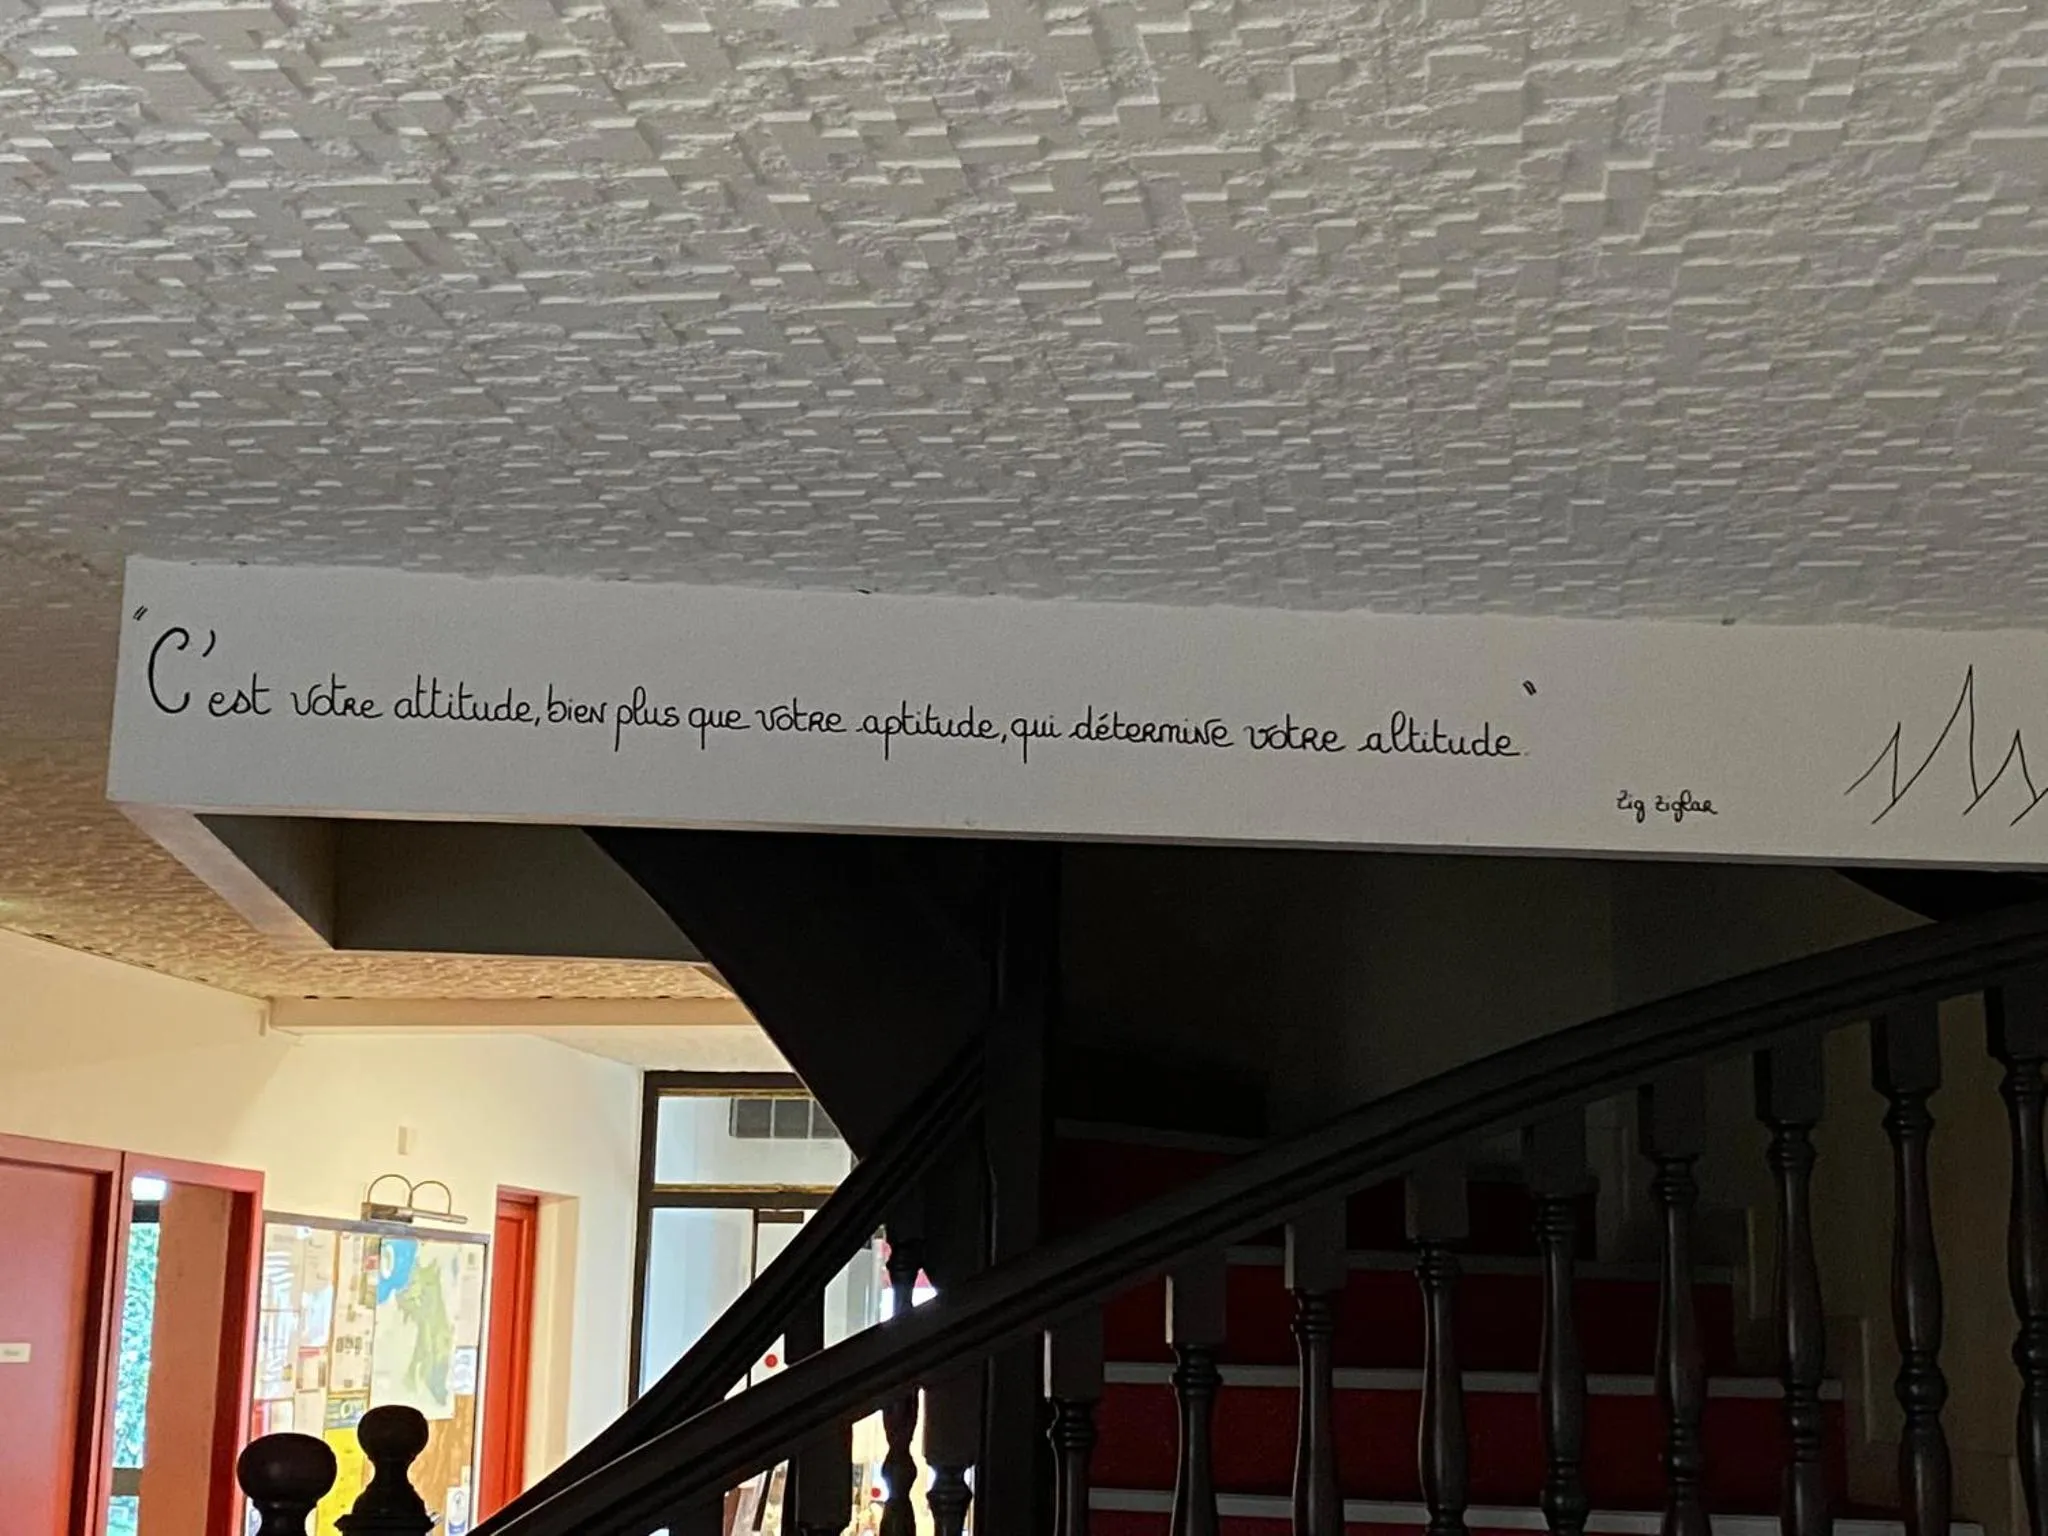 "C'est votre attitude, bien plus que votre aptitude, qui détermine votre altitude."
Zig Ziglar